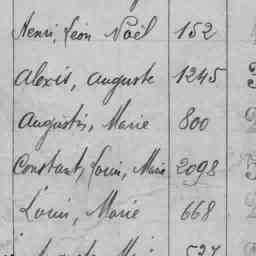 Henri, Léon Noël 152
Alexis, Auguste 1245
Augustin, Marie 800
Constant, Louis, Marie 2098
Louis, Marie 668
527